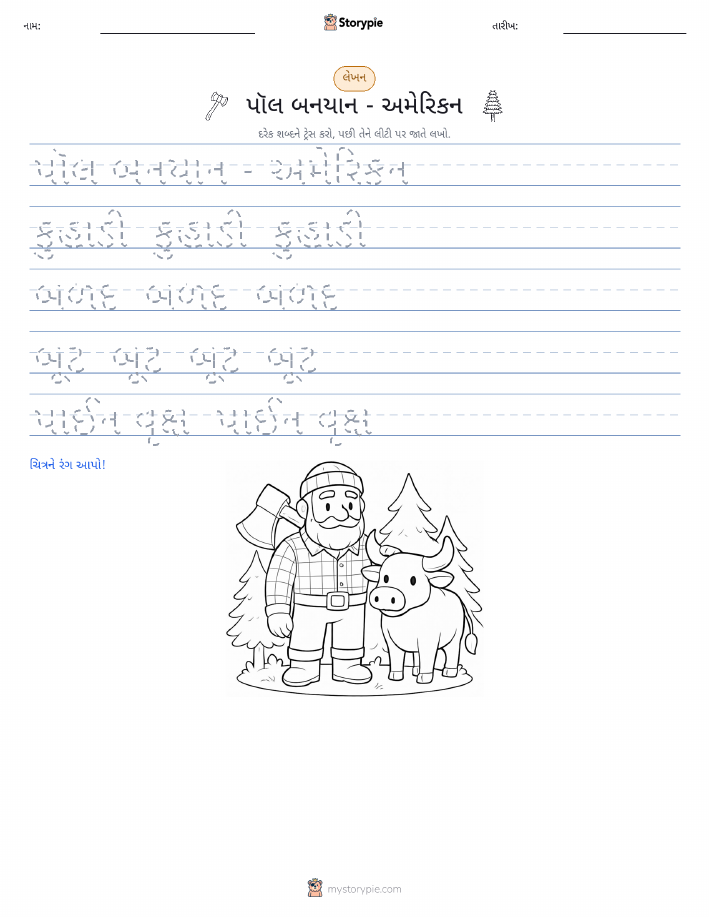 નામ:
Storypie
તારીખ:
લેખન
પૉલ બનયાન - અમેરિકન
દરેક શબ્દને ટ્રેસ કરો, પછી તેને લીટી પર જાતે લખો.
પૉલ બનયાન - અમેરિકન
કુહાડી કુહાડી કુહાડી
બળદ બળદ બળદ
બૂટ બૂટ બૂટ બૂટ
પાઈન વૃક્ષ પાઈન વૃક્ષ
ચિત્રને રંગ આપો!
mystorypie.com